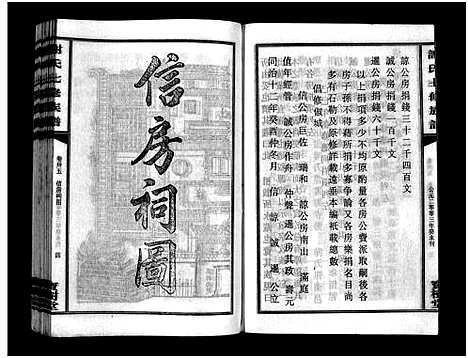 謝氏七修族譜
諒公房捐錢三十二千四百文
誠公房捐錢一百千文
暹公房捐錢六十千文
以上捐項多少不均原酌量各房公費派取嗣後各
房子孫不得藉所捐多寡爭論又各房樂捐名目尚
有老榜及原修詳載遠垂本編祇載總數
倡修倣城
信公房巨佐 瑞和 諒公房南山 滿庭
值年經管 誠公房作舟 仲聲 暹公房其政 壽元
同治十二年癸酉仲冬月 信 諒 誠 暹 公立
寶樹堂
信房祠圖
謝氏七修族譜
卷卅五
信房祠圖
四
寶樹堂